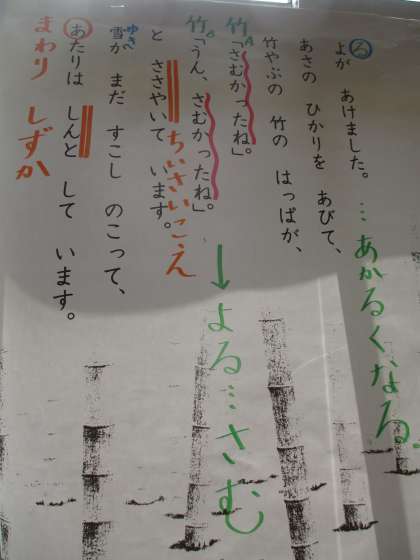 る
よが あけました。
…あかるくなる
あさの ひかりを あびて、
竹やぶの 竹の はっぱが、
竹A「さむかったね。」
竹「うん、さむかったね」。
↓よる…さむ
と ささやいて います。
ちいさいこえ
雪が まだ すこし のこって、
ゆき
あたりは しんと して います。
まわり しずか